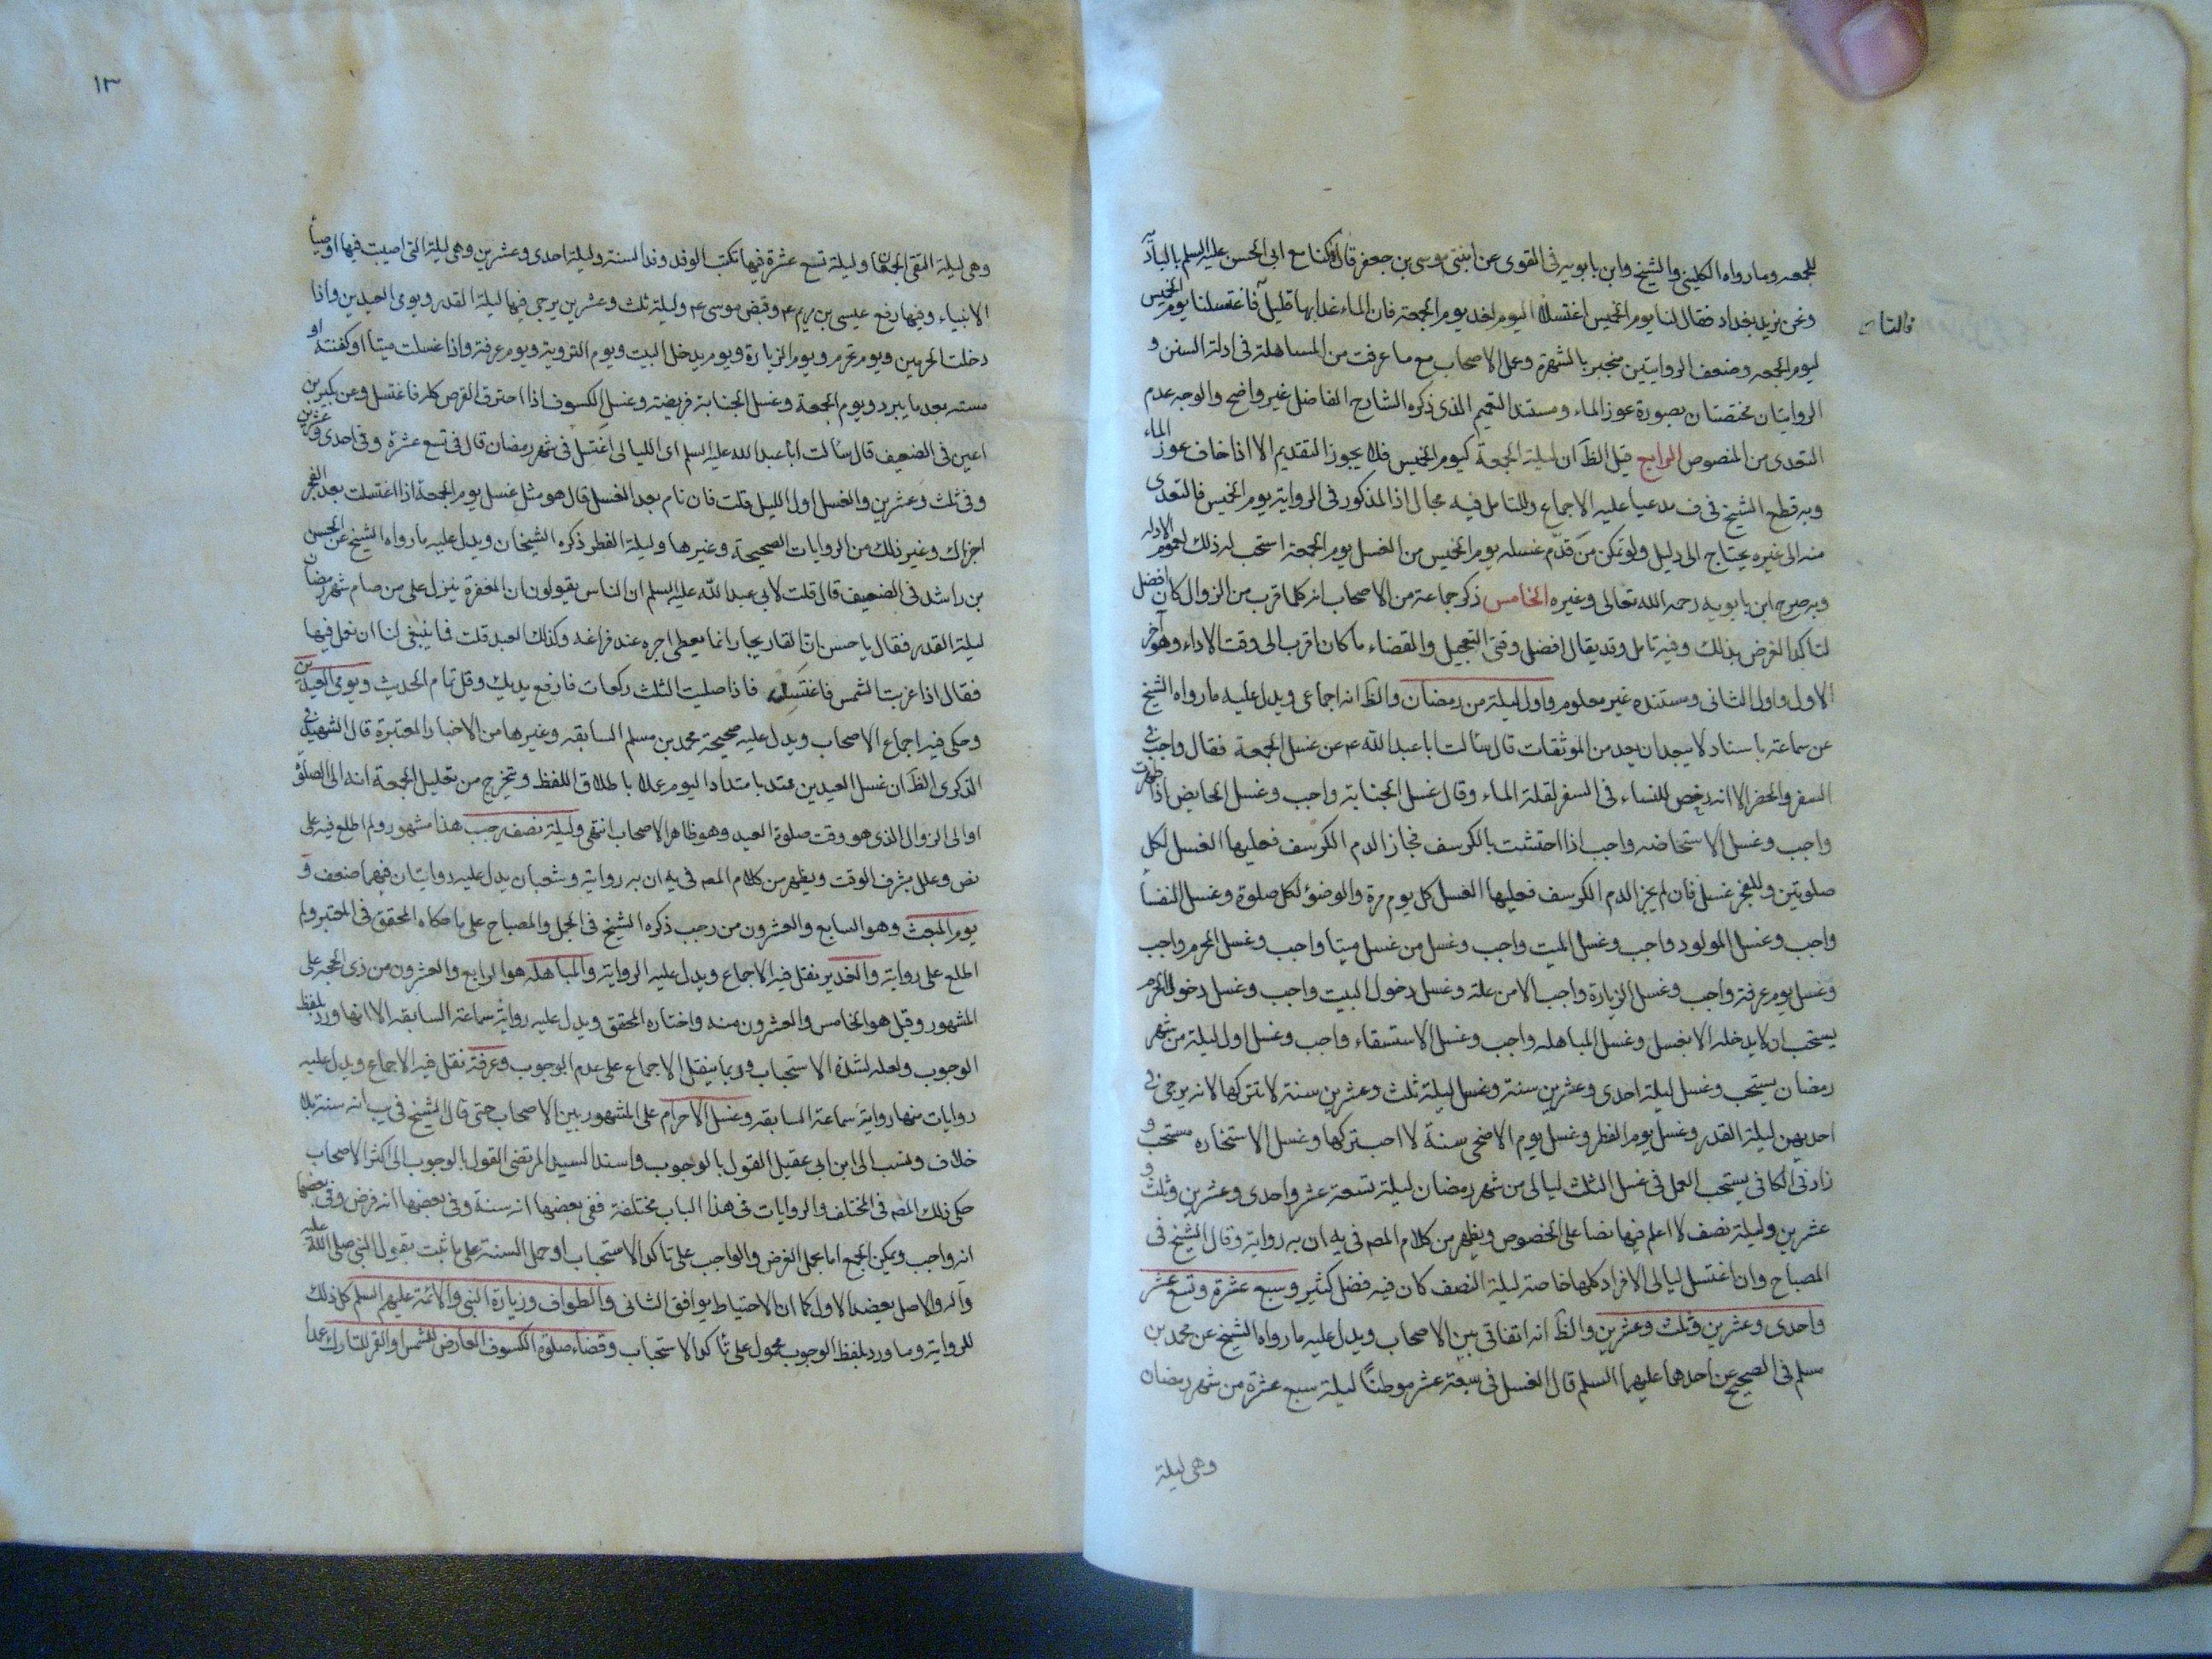 للجمعه وما رواه الكليني والشيخ وابن بابويه في القوى عن ابنتي موسى بن جعفر قالتا كنا مع ابى الحسن عليه السلم بالبادية
قالتا
ونحن نريد بغداد فقال لنا يوم الخميس اغتسلا اليوم لغد يوم الجمعة فان الماء غدا بها قليل فاغتسلنا يوم الخميس
ليوم الجمعه وضعف الروايتين منجبر بالشهرة وعمل الاصحاب مع ما عرفت من المساهلة في ادلة السنن و
الروايتان مختصتان بصورة عوز الماء ومستند التعميم الذي ذكره الشارح الفاضل غير واضح والوجه عدم
التعدى من المنصوص الرابع قيل الظ ان ليلة الجمعة كيوم الخميس فلا يجوز التقديم الا اذا خاف عوز الماء
وبه قطع الشيخ في ف مدعيا عليه الاجماع وللتامل فيه مجال اذ المذكور في الرواية يوم الخميس فالتعدى
منه الى غيره يحتاج الى دليل ولو تمكن من قدّم غسله يوم الخميس من الغسل يوم الجمعة استحب له ذلك لعموم الادله
وبه صرح ابن بابويه رحمه الله تعالى وغيره الخامس ذكر جماعة من الاصحاب انه كلما قرب من الزوال كان افضل
لتاكد الغرض بذلك وفيه تامل وقد يقال افضل وقتى التعجيل والقضاء ما كان اقرب الى وقت الاداء وهو آخر
الاول واول الثانى ومستنده غير معلوم واول ليلة من رمضان والظ انه اجماعى ويدل عليه ما رواه الشيخ
عن سماعة باسناد لا يبعد ان يعد من الموثقات قال سألت ابا عبد الله ع عن غسل الجمعة فقال واجب في
السفر والحضر الا انه رخص للنساء في السفر لقلة الماء وقال غسل الجنابة واجب وغسل الحايض اذا طهرت
واجب وغسل الاستحاضه واجب اذا احتشت بالكرسف فجاز الدم الكرسف فعليها الغسل لكل
صلوتين وللفجر غسل فان لم يجز الدم الكرسف فعليها الغسل كل يوم مرة والوضوء لكل صلوة وغسل النفساء
واجب وغسل المولود واجب وغسل الميت واجب وغسل من غسل ميتا واجب وغسل المحرم واجب
وغسل يوم عرفة واجب وغسل الزيارة واجب الا من علة وغسل دخول البيت واجب وغسل دخول الحرم
يستحب ان لا يدخله الا بغسل وغسل المباهله واجب وغسل الاستسقاء واجب وغسل اول ليلة من شهر
رمضان يستحب وغسل ليلة احدى وعشرين سنة وغسل ليلة ثلث وعشرين سنة لا تتركها لانه يرجى في
احديهن ليلة القدر وغسل يوم الفطر وغسل يوم الاضحى سنة لا احب تركها وغسل الاستخاره مستحب و
زاد في الكافي يستحب العمل في غسل الثلث ليالى من شهر رمضان ليلة تسعة عشر واحدى وعشرين وثلث و
عشرين وليلة نصف لا اعلم فيها نصا على الخصوص ويظهر من كلام المصه في يه ان به رواية وقال الشيخ في
المصباح وان اغتسل ليالى الافراد كلها خاصة ليلة النصف كان فيه فضل كثير وسبع عشرة وتسع عشر
واحدى وعشرين وثلث وعشرين والظ انه اتفاقى بين الاصحاب ويدل عليه ما رواه الشيخ عن محمد بن
مسلم في الصحيح عن احدهما عليهما السلم قال الغسل في سبعة عشر موطنًا ليلة سبع عشرة من شهر رمضان
وهى ليلة
١٣
وهى ليلة التقى الجمعان وليلة تسع عشرة فيها تكتب الوفد وفد السنة وليلة احدى وعشرين وهى ليلة التى اصيب فيها اوصياء
الانبياء وفيها رفع عيسى بن مريم ع وقبض موسى ع وليلة ثلث وعشرين يرجى فيها ليلة القدر ويومى العيدين واذا
دخلت الحرمين ويوم تحرم ويوم الزيارة ويوم يدخل البيت ويوم التروية ويوم عرفة واذا غسلت ميتا او كفنته او
مسته بعد ما يبرد ويوم الجمعة وغسل الجنابة فريضة وغسل الكسوف اذا احترق القرص كله فاغتسل وعن بكير بن
اعين في الضعيف قال سألت أبا عبد الله عليه السلم اى الليالى اغتسل في شهر رمضان قال في تسع عشرة وفى احدى وعشرين
وفي ثلث وعشرين والغسل اول الليل قلت فان نام بعد الغسل قال هو مثل غسل يوم الجمعة اذا اغتسلت بعد الفجر
اجزاك وغير ذلك من الروايات الصحيحة وغيرها وليلة الفطر ذكره الشيخان ويدل عليه ما رواه الشيخ عن الحسن
بن راشد في الضعيف قال قلت لابى عبد الله عليه السلم ان الناس يقولون ان المغفرة ينزل على من صام شهر رمضان
ليلة القدر فقال يا حسن انّ القاريجار انما يعطى اجره عند فراغه وكذلك العبد قلت فما ينبغى لنا ان نعمل فيها
فقال اذا غربت الشمس فاغتسل فاذا صليت الثلث ركعات فارفع يديك وقل تمام الحديث ويومى العيدين
وحكى فيه اجماع الاصحاب ويدل عليه صحيحة محمد بن مسلم السابقه وغيرها من الاخبار المعتبرة قال الشهيد في
الذكرى الظ ان غسل العيدين ممتد بامتداد اليوم عملا باطلاق اللفظ ويخرج من تعليل الجمعة انه الى الصلوة
او الى الزوال الذى هو وقت صلوة العيد وهو ظاهر الاصحاب انتهى وليلة نصف رجب هذا مشهور ولم اطلع فيه على
نص وعلل بشرف الوقت ويظهر من كلام المصه في يه ان به رواية وشعبان يدل عليه روايتان فيهما ضعف و
يوم المبعث وهو السابع والعشرون من رجب ذكره الشيخ في الجمل والمصباح على ما حكاه المحقق في المعتبر ولم
اطلع على رواية والغدير نقل فيه الاجماع ويدل عليه الرواية والمباهله هو الرابع والعشرون من ذى الحجه على
المشهور وقيل هو الخامس والعشرون منه واختاره المحقق ويدل عليه رواية سماعة السابقه الا انها ورد بلفظ
الوجوب ولعله لشدة الاستحباب وربما ينقل الاجماع على عدم الوجوب وعرفة نقل فيه الاجماع ويدل عليه
روايات منها رواية سماعة السابقه وغسل الاحرام على المشهور بين الاصحاب حتى قال الشيخ في يب انه سنة بلا
خلاف ونسب الى ابن ابى عقيل القول بالوجوب واسند السيد المرتضى القول بالوجوب الى اكثر الاصحاب
حكى ذلك المصه في المختلف والروايات في هذا الباب مختلفة ففي بعضها انه سنة وفي بعضها انه فرض وفي بعضها
انه واجب ويمكن الجمع اما بحمل الغرض والواجب على تاكد الاستحباب او حمل السنة على ما ثبت بقول النبى صلى الله عليه
وآله والاصل يعضد الاول كما ان الاحتياط يوافق الثانى والطواف وزيارة النبى والائمة عليهم السلم كل ذلك
للرواية وما ورد بلفظ الوجوب محمول على تأكد الاستحباب وقضاء صلوة الكسوف العارض للشمس والقمر للتارك عمدا